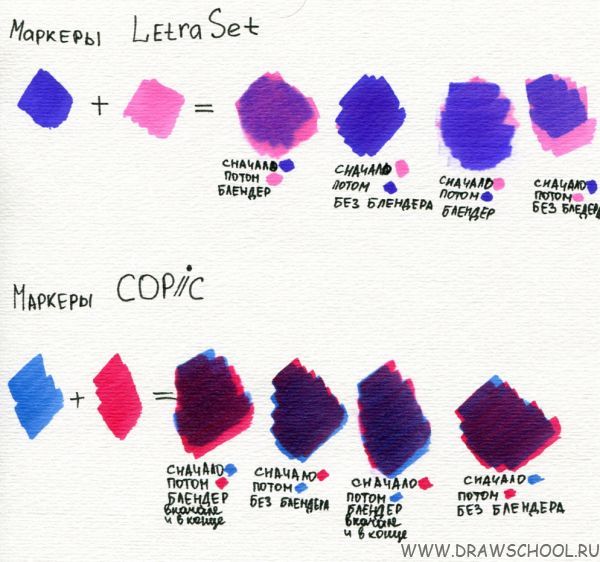 Маркеры LEtraSet
+ =
СНАЧАЛО
ПОТОМ
БЛЕНДЕР
СНАЧАЛО
ПОТОМ
БЕЗ БЛЕНДЕРА
СНАЧАЛО
ПОТОМ
БЛЕНДЕР
СНАЧАЛО
ПОТОМ
БЕЗ БЛЕДЕРА
Маркеры COPiC
+ =
СНАЧАЛО
ПОТОМ
БЛЕНДЕР
вначале
и в конце
СНАЧАЛО
ПОТОМ
БЕЗ БЛЕНДЕРА
СНАЧАЛО
ПОТОМ
БЛЕНДЕР
вначале
и в конце
СНАЧАЛО
ПОТОМ
БЕЗ БЛЕНДЕРА
WWW.DRAWSCHOOL.RU